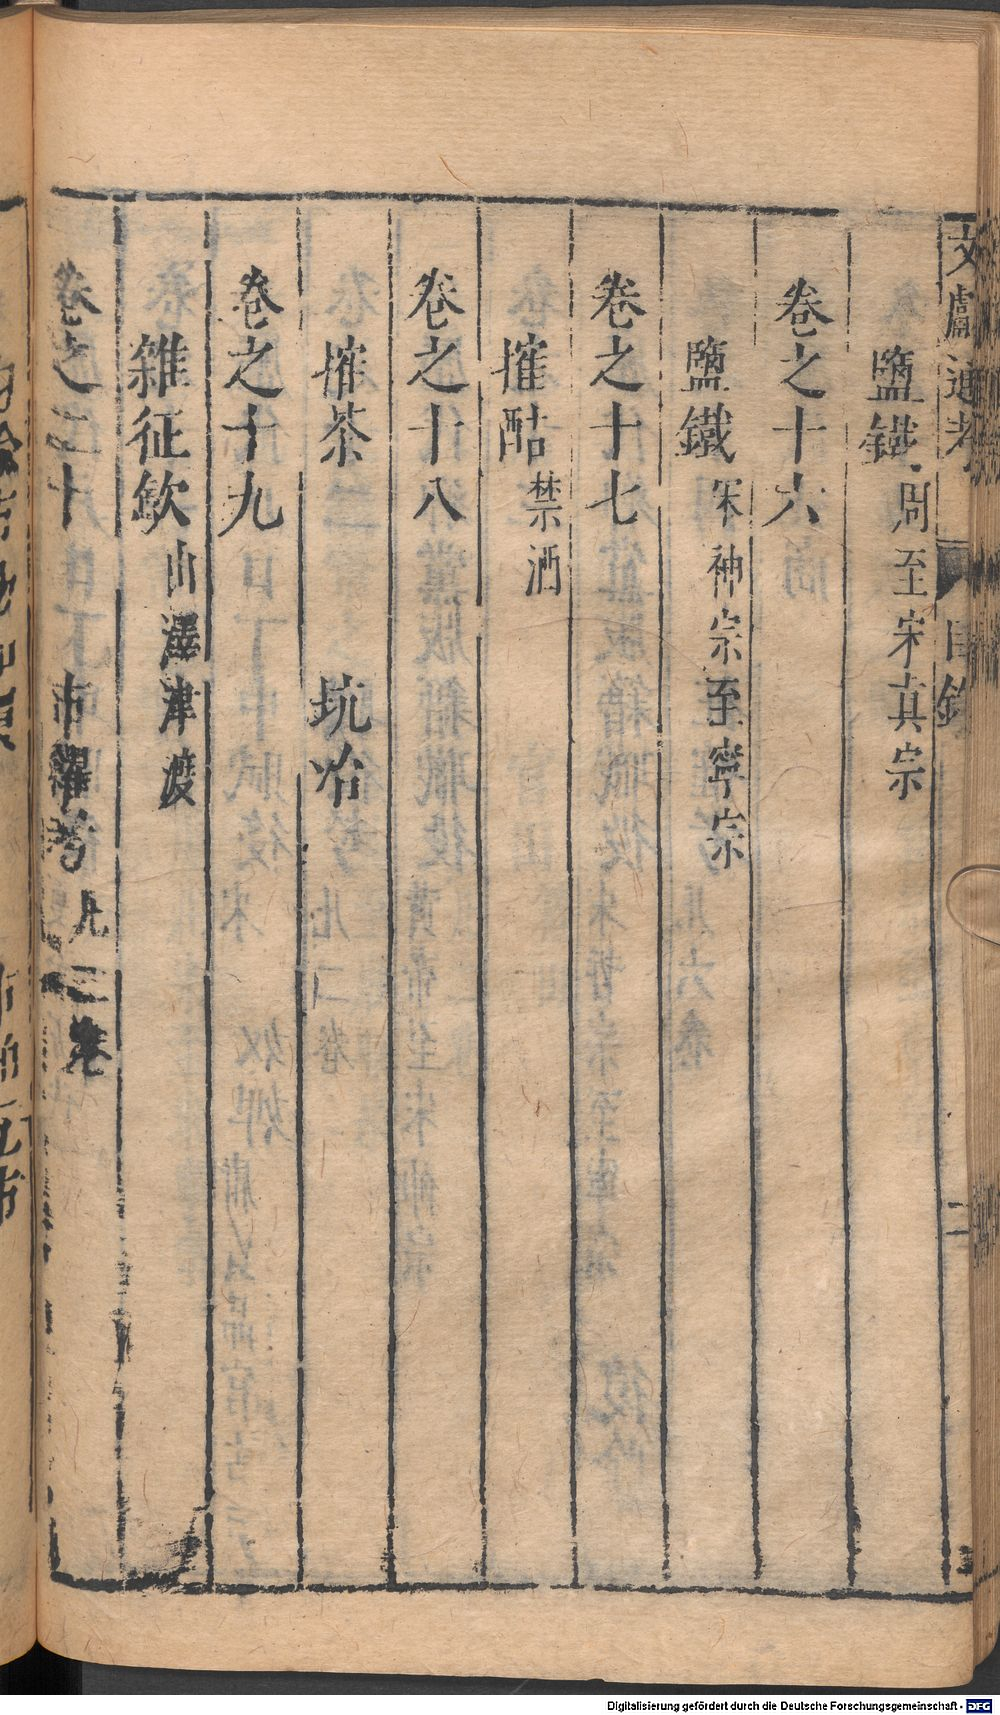 文獻通考 目錄 二
鹽鐵 周至宋真宗
卷之十六
鹽鐵 宋神宗至寧宗
卷之十七
搉酤 禁酒
卷之十八
搉茶 坑冶
卷之十九
雜征歛 山澤津渡
卷之二十 市糴考 凡二卷
Digitalisierung gefördert durch die Deutsche Forschungsgemeinschaft - DFG